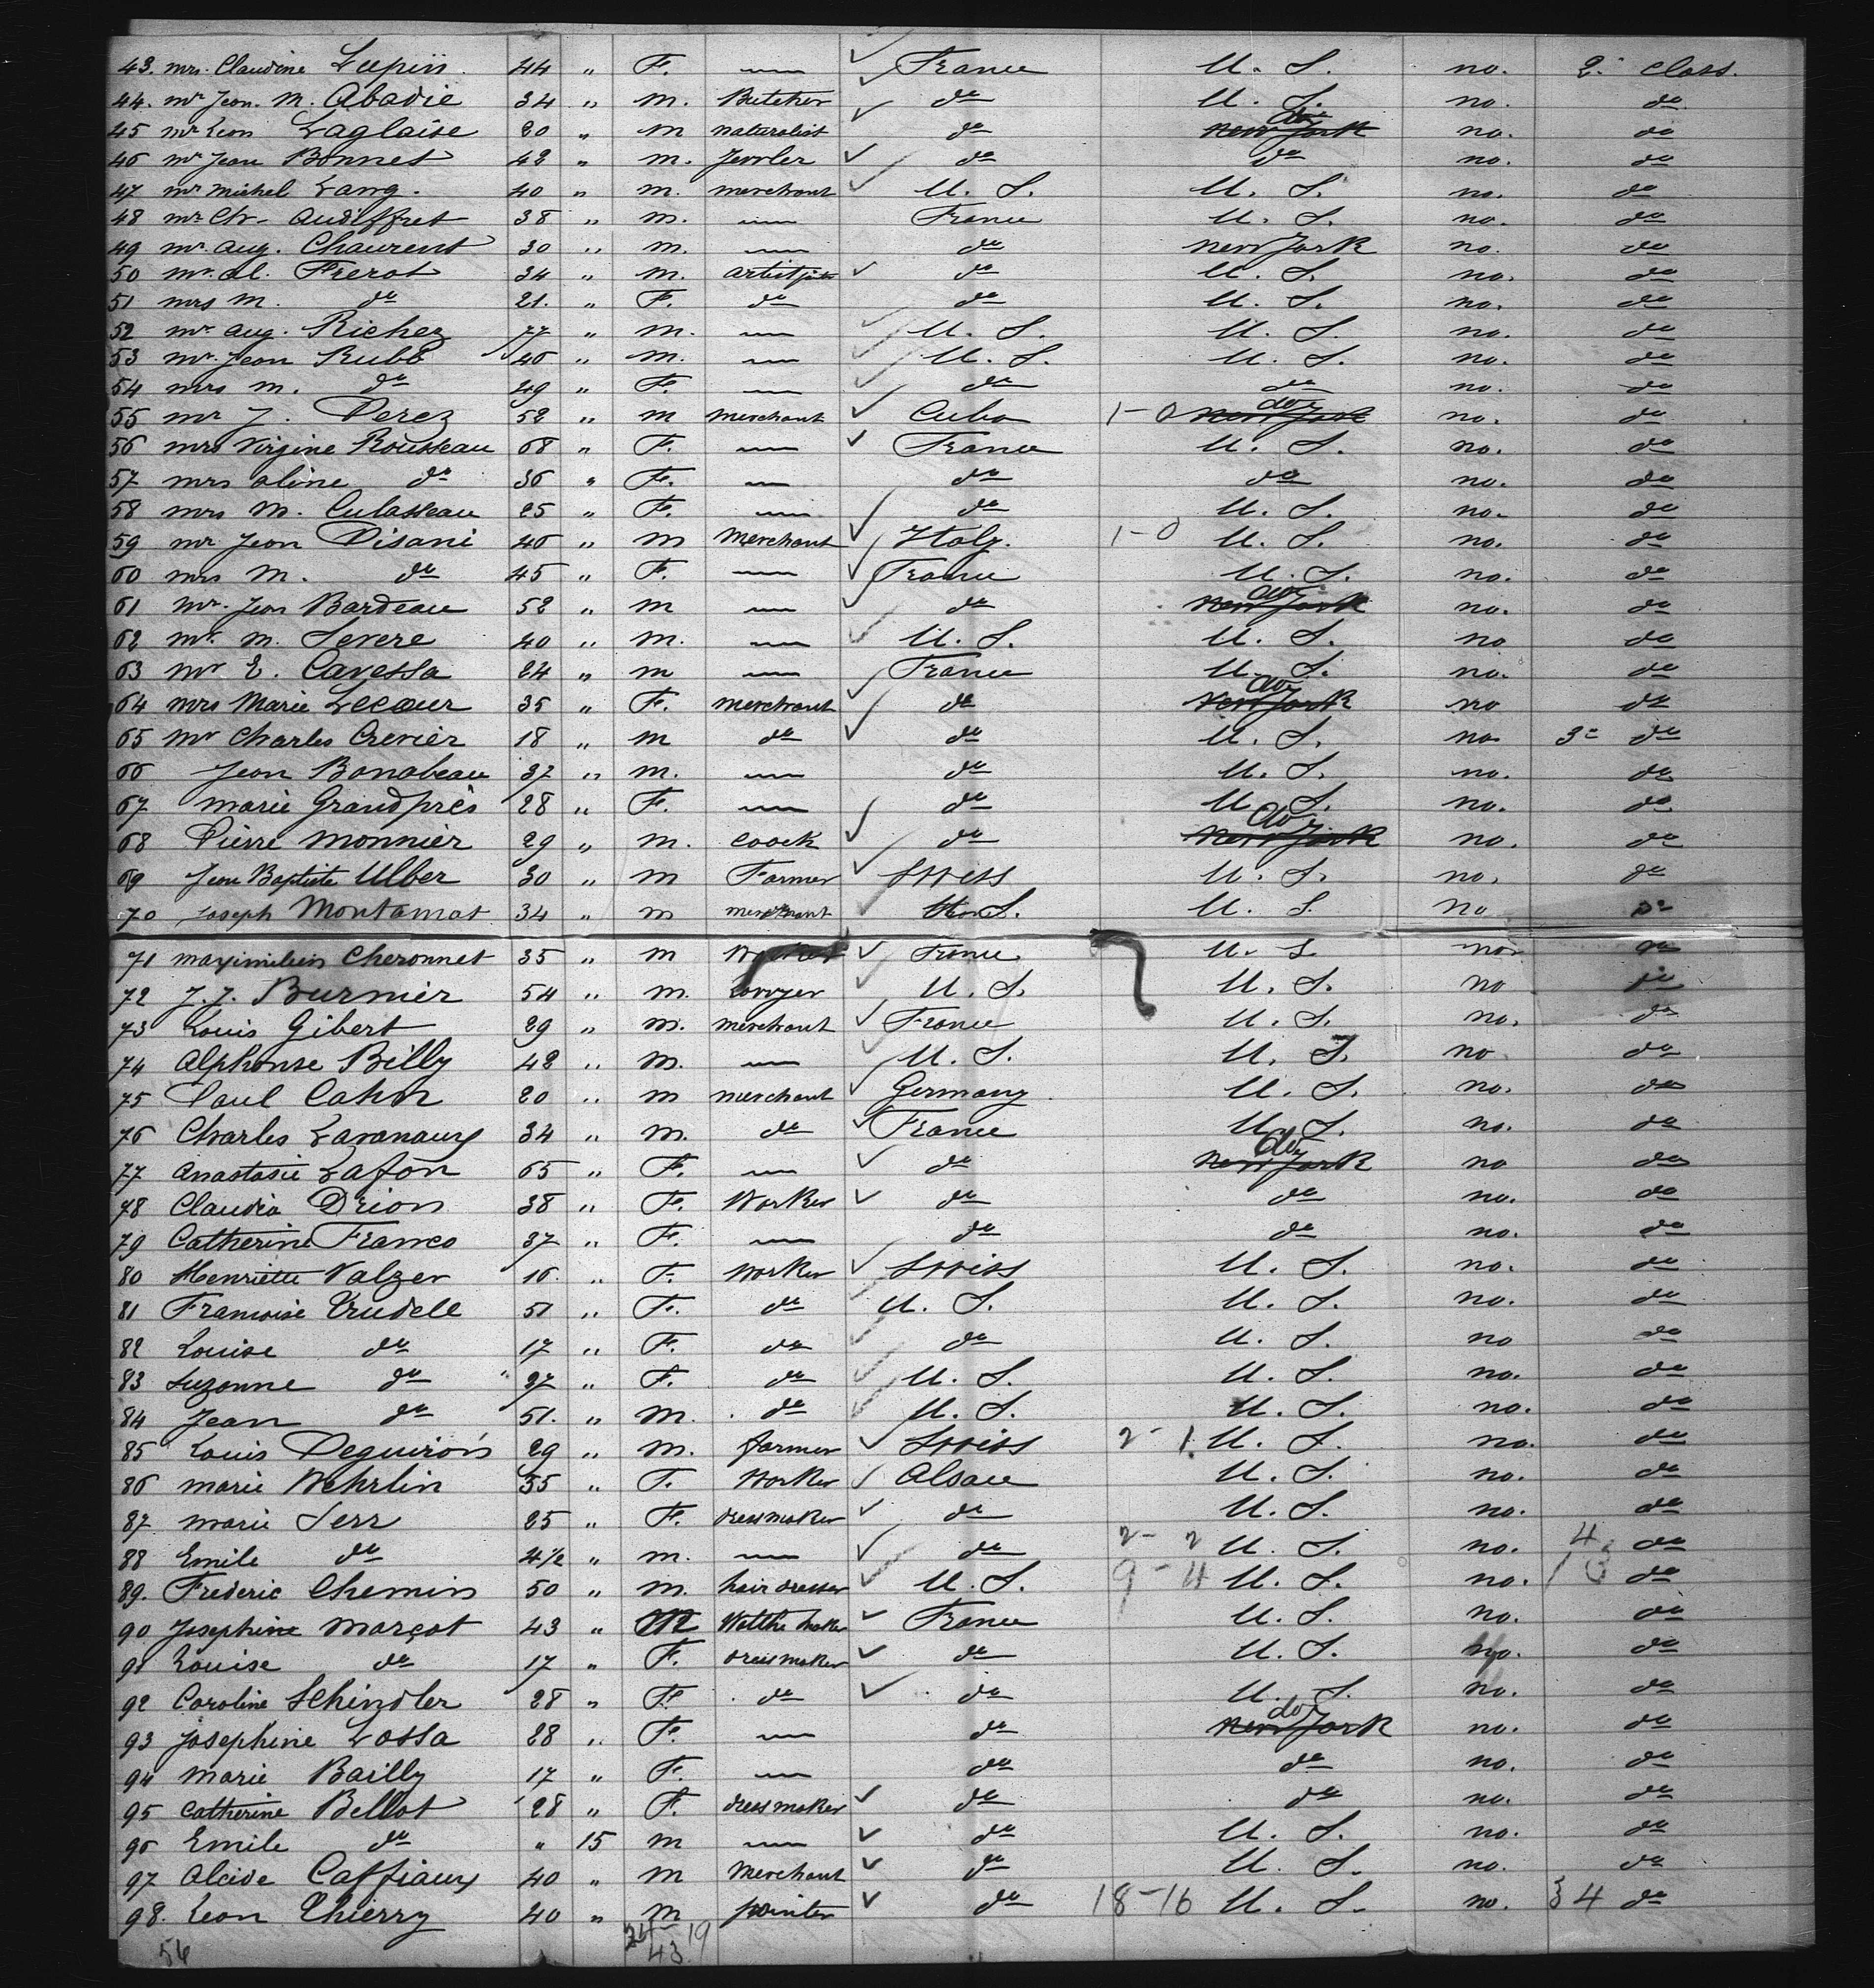 43. Mrs. Claudine Lupin 44 " F. — France U. S. no. 2" class.
44. Mr Jean. M. Abadie 34 " M. Butcher do U. S. no. do
45 Mr Leon Laglaise 20 " M naturalist do New York do no. do
46 Mr Jean Bonnet 42 " M. Jewler do do no. do
47 Mr Michel Lang. 40 " M. merchant U. S. U. S. no. do
48 Mr Ch. Audiffret 38 " M. — France U. S. no. do
49 Mr. Aug. Chaurent 30 " M. — do New York no. do
50 Mr. Al. Frerot 34 " M. do U. S. no. do
51 Mrs M. do 21. " F. do do U. S. no. do
52 Mr Aug. Richez 77 " M. — U. S. U. S. no. do
53 Mr. Jean Rubé 46 " M. — U. S. U. S. no. do
54 Mrs M. do 49 " F. — do do no. do
55 Mr J. Perez 52 " M merchant Cuba 1-0 New York do no. do
56 Mrs Virgine Rousseau 68 " F. — France U. S. no. do
57 Mrs Aline do 36 " F. — do do no. do
58 Mrs M. Culasseau 25 " F. — do U. S. no. do
59 Mr Jean Pisani 46 " M Merchant Italy. 1-0 U. S. no. do
60 Mrs M. do 45 " F. — France U. S. no. do
61 Mr. Jean Bardeau 52 " M — do New York do no. do
62 Mr. M. Severe 40 " M. — U. S. U. S. no do
63 Mr E. Cavessa 24 " M — France U. S. no. do
64 Mrs Marie Lecœur 35 " F. merchant do New York do no do
65 Mr Charles Crevier 18 " M do do U. S. no 3e do
66 Jean Bonabeau 37 " M. — do U. S. no. do
67 Marie Grandprés 28 " F. — do U. S. no. do
68 Pierre Monnier 29 " M. coock do New York do no. do
69 Jean Baptiste Ulber 30 " M Farmer Swiss U. S. no. do
70 Joseph Montamat 34 " M merchant U. S. no do
71 Maximilien Cheronnet 35 " M Worker France U. S. no do
72 J. J. Burnier 54 " M. Lawyer U. S. U. S. no do
73 Louis Gibert 29 " M. merchant France U. S. no. do
74 Alphonse Billy 42 " M. — U. S. U. S. no do
75 Paul Cahn 20 " M merchant Germany U. S. no. do
76 Charles Lavanaux 34 " M. do France U. S. no. do
77 Anastasie Lafon 65 " F. — do New York do no do
78 Claudia Drion 38 " F. Worker do do no. do
79 Catherine Franco 37 " F. — do do no. do
80 Henriette Valzer 16. " F. Worker Swiss U. S. no. do
81 Francoise Trudelle 51 " F. do U. S. U. S. no. do
82 Louise do 17 " F. do do U. S. no do
83 Suzonne do 27 " F. do U. S. U. S. no. do
84 Jean do 51. " M. do U. S. U. S. no. do
85 Louis Deguirois 29 " M. farmer Swiss 2-1 U. S. no. do
86 Marie Wehrlin 35 " F. Worker Alsace U. S. no. do
87 Marie Serr 25 " F. dressmaker do U. S. no. do
88 Emile do 4 1/2 " M. — do 2-2 U. S. no. 4 do
89. Frederic Chemin 50 " M. hair dresser U. S. 9-4 U. S. no. do
90 Josephine Marçot 43 " M Watthe maker France U. S. no. do
91 Louise do 17 " F. dressmaker do U. S. no. do
92 Caroline Schindler 28 " F. do do U. S. no. do
93 Josephine Lossa 28 " F. — do New York do no. do
94 Marie Bailly 17 " F. — do do no. do
95 Catherine Bellot 28 " F. dressmaker do do no. do
96 Emile do " 15 M — do U. S. no. do
97 Alcide Caffiaux 40 " M Merchant do U. S. no. do
98. Leon Thierry 40 " M painter do 18-16 U. S. no. 34 do
56 24 19
43